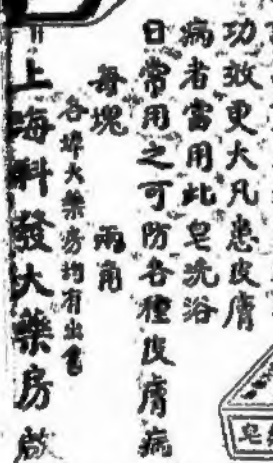 功效更大凡患皮膚
病者當用此皂洗浴
日常用之可防各種皮膚病
每塊 兩角
各埠大藥房均有出售
上海科發大藥房啟
皂